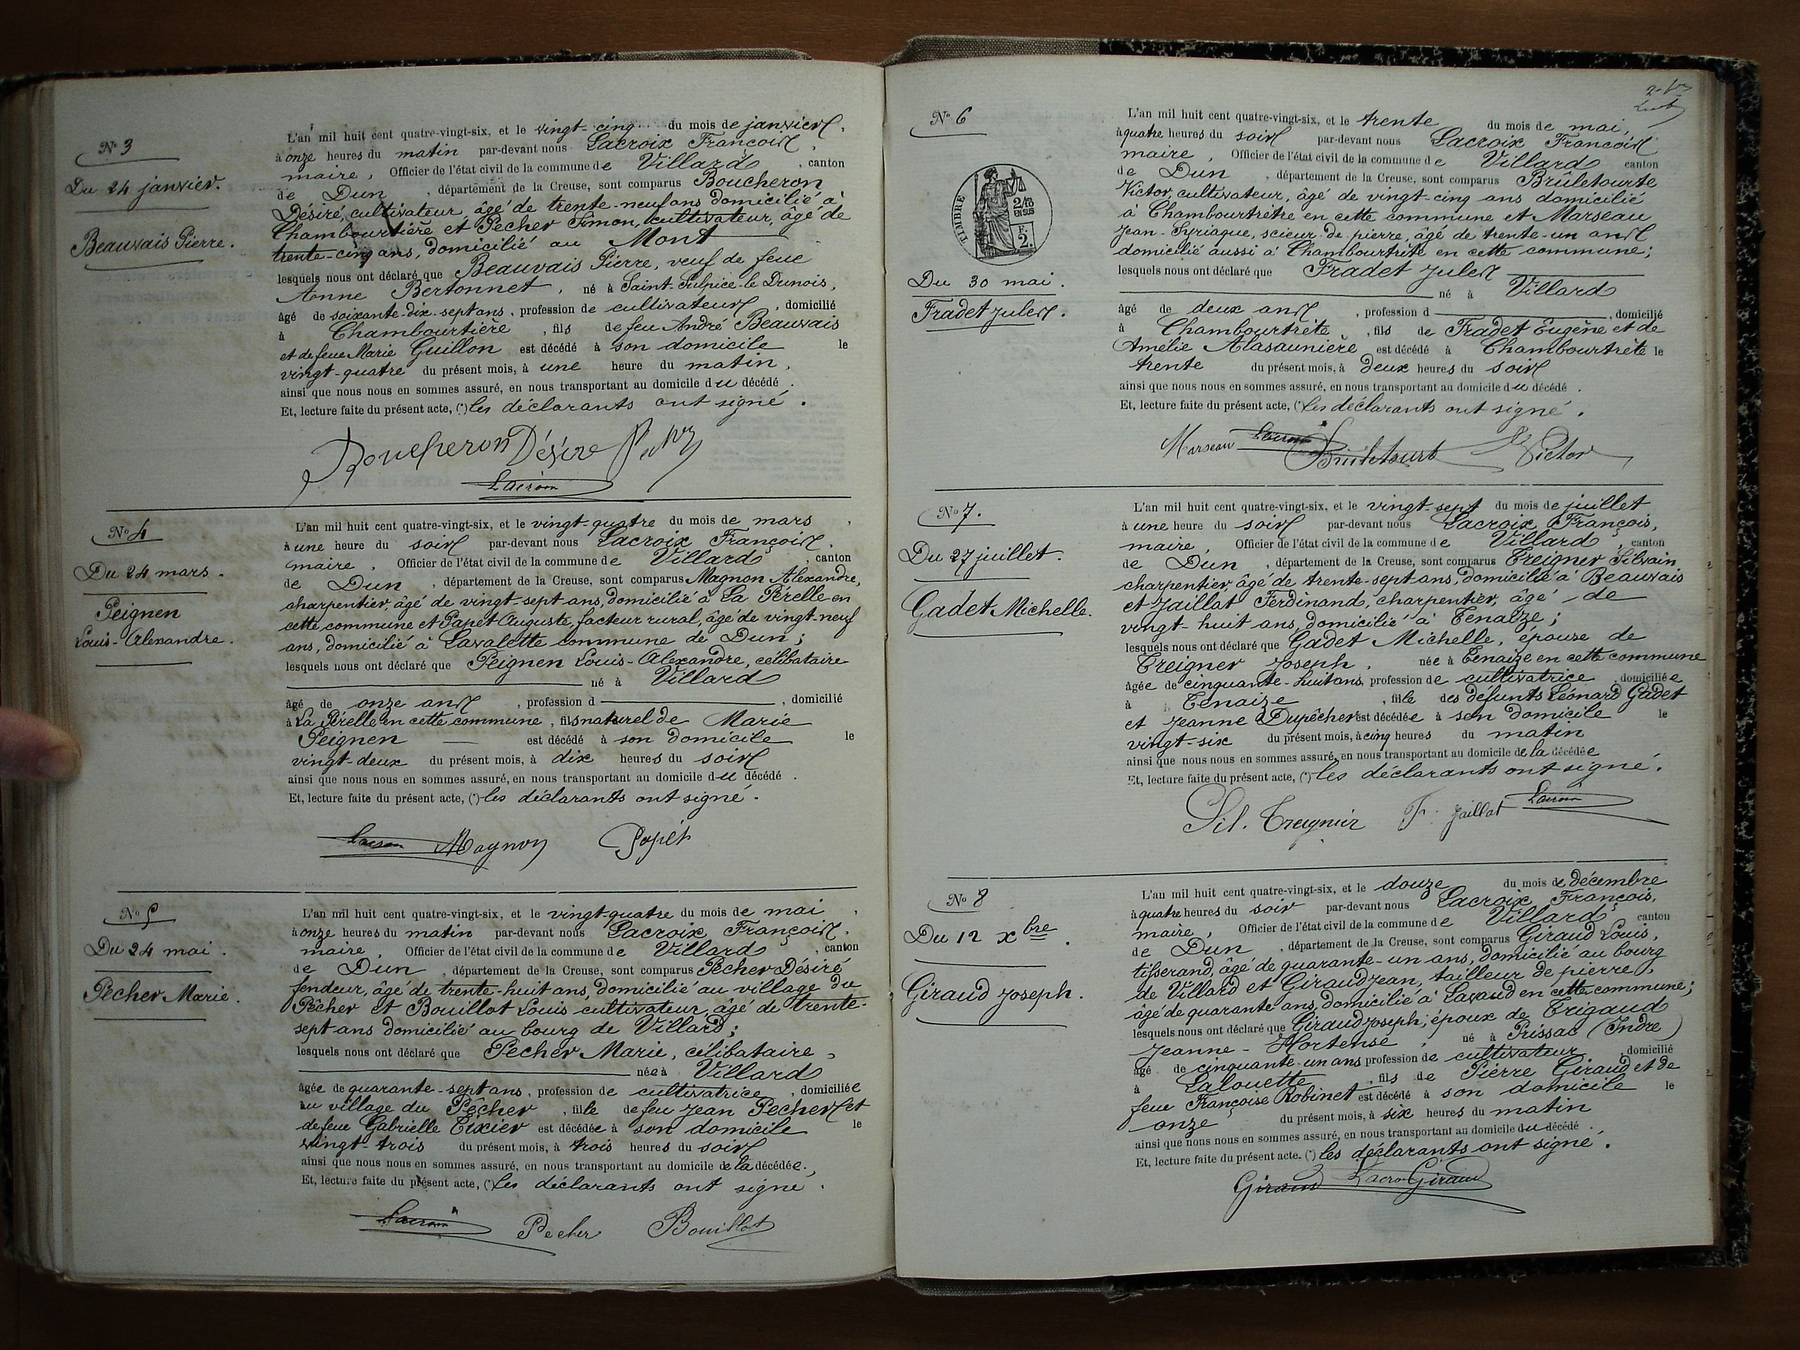 N° 3
Du 24 janvier.
Beauvais Pierre.
L'an mil huit cent quatre-vingt-six, et le vingt-cinq du mois de janvier,
à onze heures du matin par-devant nous Lacroix François,
maire, Officier de l'état civil de la commune de Villard, canton
de Dun, département de la Creuse, sont comparus Boucheron
Désiré, cultivateur, âgé de trente-neuf ans domicilié à
Chambourtière et Pécher Simon, cultivateur, âgé de
trente-cinq ans, domicilié au Mont
lesquels nous ont déclaré que Beauvais Pierre, veuf de feue
Anne Bertonnet, né à Saint-Sulpice-le Dunois,
âgé de soixante-dix-sept ans, profession de cultivateur, domicilié
à Chambourtière, fils de feu André Beauvais
et de feue Marie Guillon est décédé à son domicile le
vingt-quatre du présent mois, à une heure du matin,
ainsi que nous nous en sommes assuré, en nous transportant au domicile du décédé.
Et, lecture faite du présent acte, (*) les déclarants ont signé.
Boucheron Désiré
Lacroix
N° 4
Du 24 mars.
Peignen
Louis-Alexandre.
L'an mil huit cent quatre-vingt-six, et le vingt-quatre du mois de mars,
à une heure du soir par-devant nous Lacroix François,
maire, Officier de l'état civil de la commune de Villard, canton
de Dun, département de la Creuse, sont comparus Magnon Alexandre,
charpentier, âgé de vingt-sept ans, domicilié à La Pérelle en
cette commune et Papet Auguste, facteur rural, âgé de vingt-neuf
ans, domicilié à Lavalette commune de Dun;
lesquels nous ont déclaré que Peignen Louis-Alexandre, célibataire
né à Villard
âgé de onze ans, profession d, domicilié
à La Pérelle en cette commune, fils naturel de Marie
Peignen est décédé à son domicile le
vingt-deux du présent mois, à dix heures du soir
ainsi que nous nous en sommes assuré, en nous transportant au domicile du décédé.
Et, lecture faite du présent acte, (*) les déclarants ont signé.
Lacroix Magnon Papet
N° 5
Du 24 mai.
Pécher Marie.
L'an mil huit cent quatre-vingt-six, et le vingt-quatre du mois de mai,
à onze heures du matin par-devant nous Lacroix François,
maire, Officier de l'état civil de la commune de Villard, canton
de Dun, département de la Creuse, sont comparus Pécher Désiré
fendeur, âgé de trente-huit ans, domicilié au village du
Pêcher et Bouillot Louis cultivateur, âgé de trente-
sept ans domicilié au bourg de Villard;
lesquels nous ont déclaré que Pécher Marie, célibataire,
née à Villard
âgée de quarante-sept ans, profession de cultivatrice, domiciliée
au village du Pêcher, fille de feu Jean Pecher et
de feue Gabrielle Tixier est décédée à son domicile le
vingt-trois du présent mois, à trois heures du soir
ainsi que nous nous en sommes assuré, en nous transportant au domicile de la décédée.
Et, lecture faite du présent acte, (*) les déclarants ont signé.
Lacroix Pecher Bouillot
N° 6
TIMBRE
2/10
EN SUS
2
Du 30 mai.
Fradet Jules.
L'an mil huit cent quatre-vingt-six, et le trente du mois de mai,
à quatre heures du soir par-devant nous Lacroix François
maire, Officier de l'état civil de la commune de Villard canton
de Dun, département de la Creuse, sont comparus Brûletourte
Victor, cultivateur, âgé de vingt-cinq ans domicilié
à Chambourtrête en cette commune et Marseau
Jean-Syriaque, scieur de pierre, âgé de trente-un ans
domicilié aussi à Chambourtrête en cette commune;
lesquels nous ont déclaré que Fradet Jules
né à Villard
âgé de deux ans, profession d, domicilié
à Chambourtrête, fils de Fradet Eugène et de
Amélie Alasaunière est décédé à Chambourtrête le
trente du présent mois, à deux heures du soir
ainsi que nous nous en sommes assuré, en nous transportant au domicile du décédé.
Et, lecture faite du présent acte, (*) les déclarants ont signé.
Marseau Lacroix Victor
N° 7.
Du 27 juillet.
Gadet Michelle.
L'an mil huit cent quatre-vingt-six, et le vingt-sept du mois de juillet
à une heure du soir par-devant nous Lacroix François,
maire, Officier de l'état civil de la commune de Villard, canton
de Dun, département de la Creuse, sont comparus Treigner Silvain
charpentier, âgé de trente-sept ans, domicilié à Beauvais
et Jaillot Ferdinand, charpentier, âgé de
vingt-huit ans, domicilié à Tenaize;
lesquels nous ont déclaré que Gadet Michelle, épouse de
Treigner Joseph, née à Tenaize en cette commune
âgée de cinquante-huit ans, profession de cultivatrice, domiciliée
à Tenaize, fille des défunts Léonard Gadet
et Jeanne Dupêcher est décédée à son domicile le
vingt-six du présent mois, à cinq heures du matin
ainsi que nous nous en sommes assuré, en nous transportant au domicile de la décédée
Et, lecture faite du présent acte, (*) les déclarants ont signé.
Sil. Treignier F. Jaillot Lacroix
N° 8
Du 12 xbre.
Giraud Joseph.
L'an mil huit cent quatre-vingt-six, et le douze du mois de décembre
à quatre heures du soir par-devant nous Lacroix François,
maire, Officier de l'état civil de la commune de Villard, canton
de Dun, département de la Creuse, sont comparus Giraud Louis,
tisserand, âgé de quarante-un ans, domicilié au bourg
de Villard et Giraud Jean, tailleur de pierre,
âgé de quarante ans, domicilié à Lavaud en cette commune;
lesquels nous ont déclaré que Giraud Joseph, époux de Trigaud
Jeanne-Hortense, né à Prissac (Indre)
âgé de cinquante-un ans profession de cultivateur, domicilié
à Lalouette, fils de Pierre Giraud et de
feue Françoise Robinet est décédé à son domicile le
onze du présent mois, à six heures du matin
ainsi que nous nous en sommes assuré, en nous transportant au domicile du décédé.
Et, lecture faite du présent acte. (*) les déclarants ont signé.
Giraud Lacroix Giraud